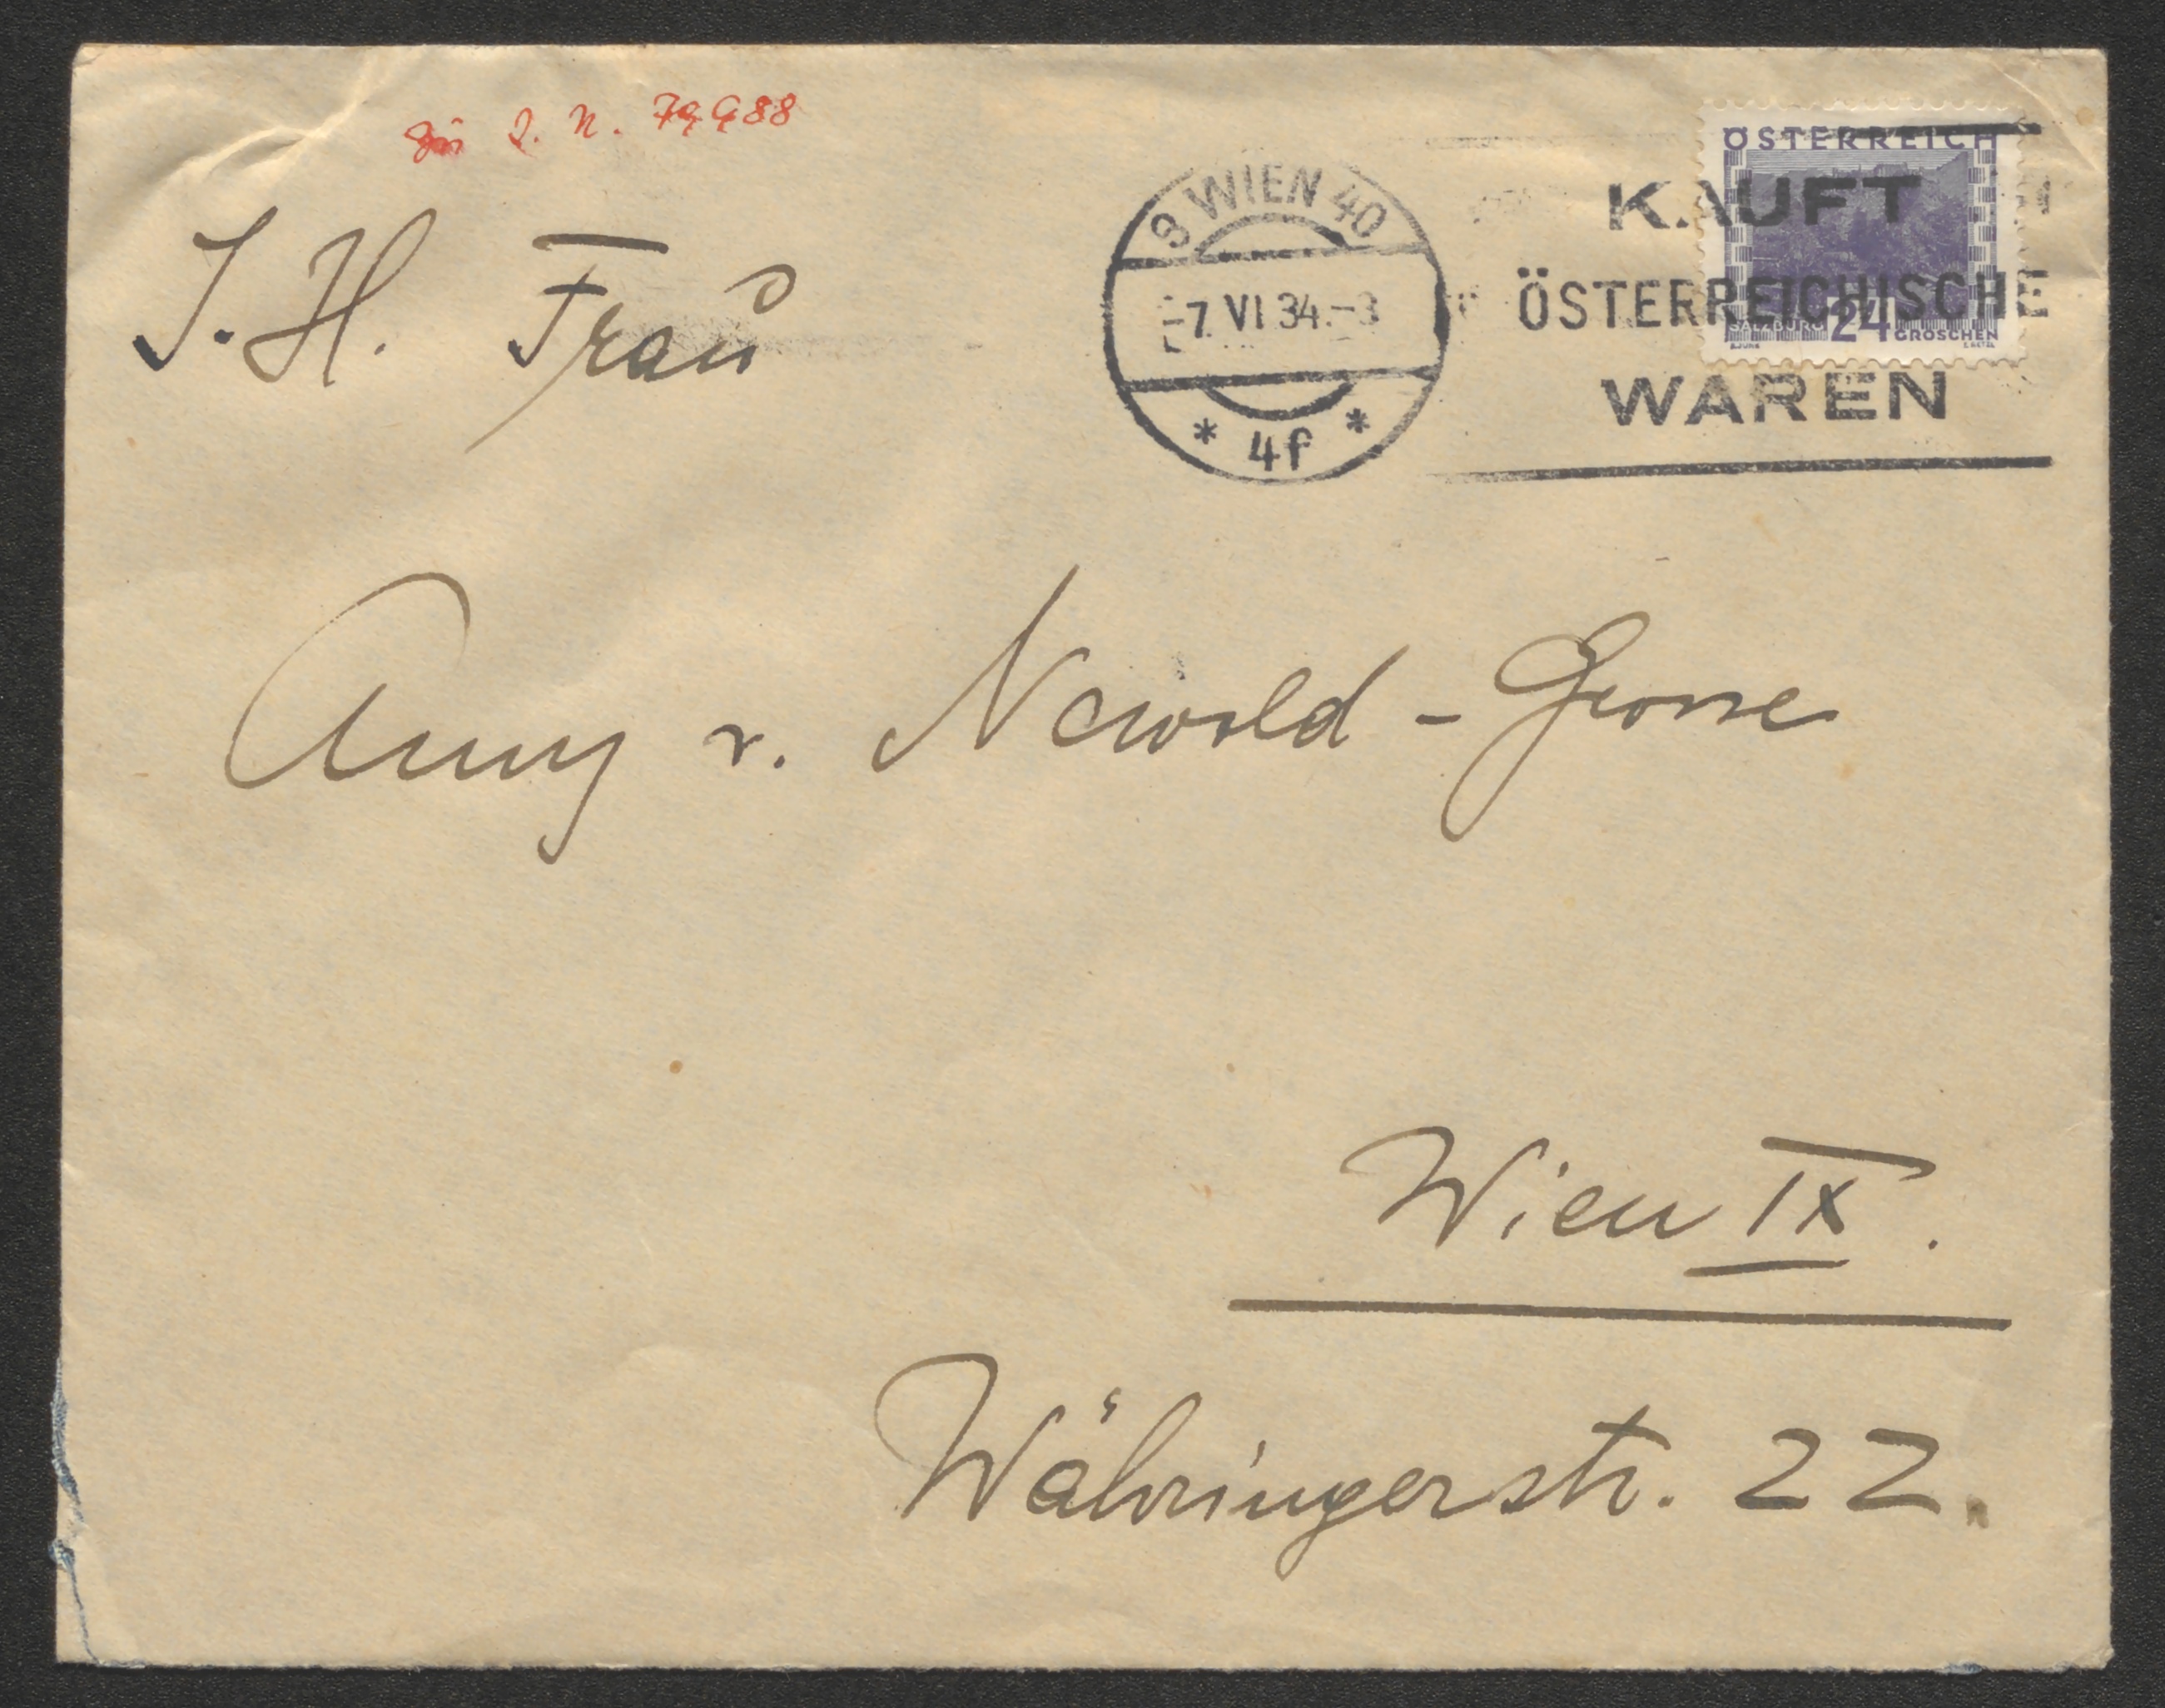 I. N. 79988
I. H. Frau
9 WIEN 40
-7. VI 34.-3
* 4f *
ÖSTERREICH
KAUFT
ÖSTERREICHISCHE
WAREN
SALZBURG 24 GROSCHEN
Anny v. Newald-Grosse
Wien IX.
Währingerstr. 22.